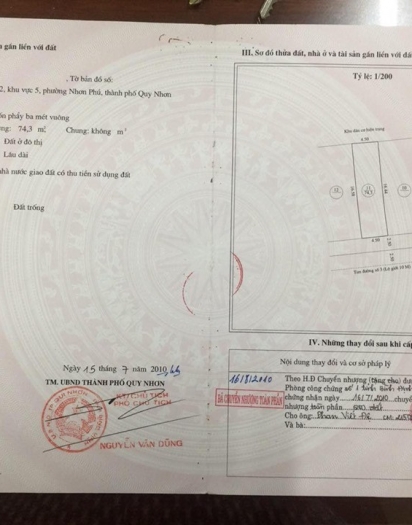 a gắn liền với đất
, Tờ bản đồ số:
2, khu vực 5, phường Nhơn Phú, thành phố Quy Nhơn
ốn phẩy ba mét vuông
ng: 74,3 m² Chung: không m²
Đất ở đô thị
Lâu dài
hà nước giao đất có thu tiền sử dụng đất
Đất trống
Ngày 15 tháng 7 năm 2010
TM. UBND THÀNH PHỐ QUY NHƠN
KT/CHỦ TỊCH
PHÓ CHỦ TỊCH
NGUYỄN VĂN DŨNG
III. Sơ đồ thửa đất, nhà ở và tài sản gắn liền với đấ
Tỷ lệ: 1/200
4.50
4.50
IV. Những thay đổi sau khi cấ
Nội dung thay đổi và cơ sở pháp lý
16/8/2010
ĐÃ CHUYỂN NHƯỢNG TOÀN PHẦN
Theo H.Đ Chuyển nhượng (tặng cho) đư
Phòng công chứng số 1 tỉnh Bình Định
chứng nhận ngày 16/7/2010 chuyể
nhượng toàn phần
Cho ông: Phan Viết
Và bà: